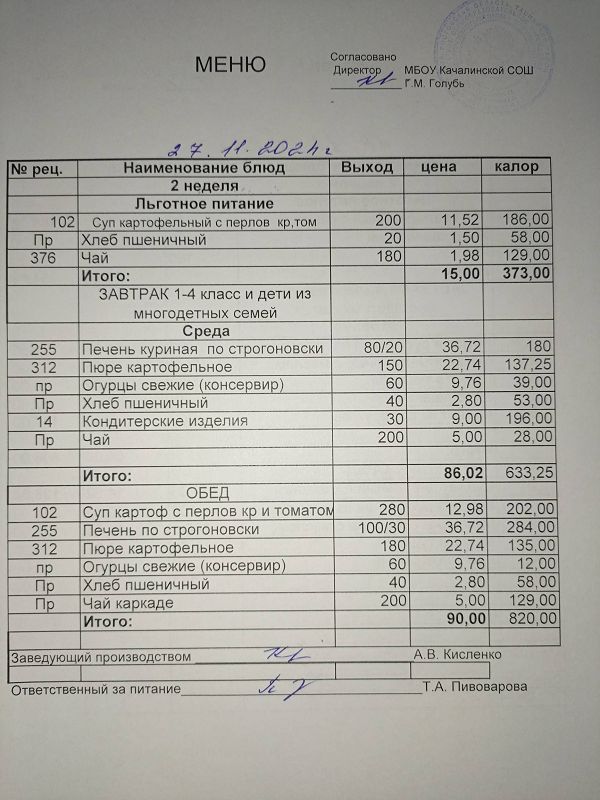 Согласовано
МЕНЮ
Директор МБОУ Качалинской СОШ
Г.М. Голубь
27.11.2024г
№ рец. Наименование блюд Выход цена калор
2 неделя
Льготное питание
102 Суп картофельный с перлов кр,том 200 11,52 186,00
Пр Хлеб пшеничный 20 1,50 58,00
376 Чай 180 1,98 129,00
Итого: 15,00 373,00
ЗАВТРАК 1-4 класс и дети из
многодетных семей
Среда
255 Печень куриная по строгоновски 80/20 36,72 180
312 Пюре картофельное 150 22,74 137,25
пр Огурцы свежие (консервир) 60 9,76 39,00
Пр Хлеб пшеничный 40 2,80 53,00
14 Кондитерские изделия 30 9,00 196,00
Пр Чай 200 5,00 28,00
Итого: 86,02 633,25
ОБЕД
102 Суп картоф с перлов кр и томатом 280 12,98 202,00
255 Печень по строгоновски 100/30 36,72 284,00
312 Пюре картофельное 180 22,74 135,00
пр Огурцы свежие (консервир) 60 9,76 12,00
Пр Хлеб пшеничный 40 2,80 58,00
Пр Чай каркаде 200 5,00 129,00
Итого: 90,00 820,00
Заведующий производством А.В. Кисленко
Ответственный за питание Т.А. Пивоварова